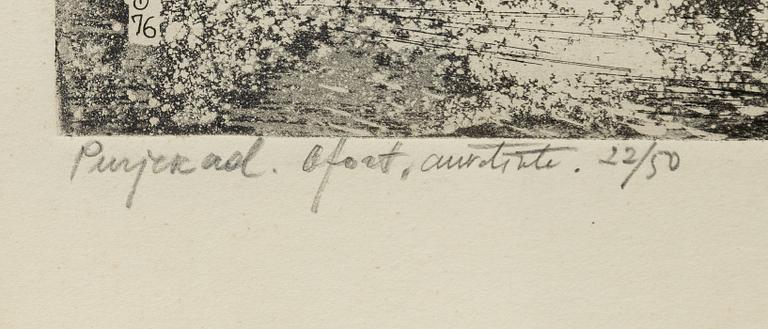 76
Purjekad. Ofort, akvatinta. 22/50